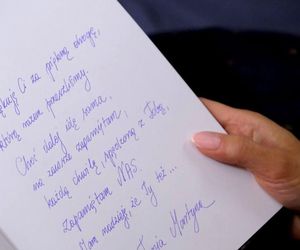 Ci za piękną drogę,
którą razem przeszliśmy.
Choć dalej idę sama,
na zawsze zapamiętam
każdą chwilę spędzoną z Tobą,
zapamiętam NAS
Mam nadzieję, że Ty też...
Martyna